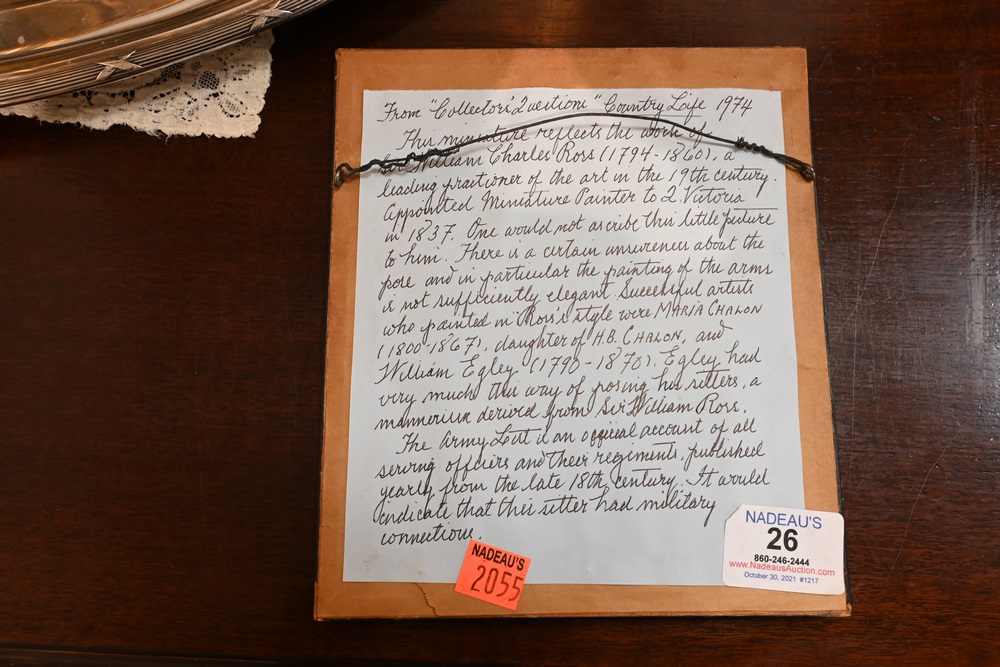 From "Collectors' Questions" Country Life 1974
This miniature reflects the work of
Sir William Charles Ross (1794-1860), a
leading practioner of the art in the 19th century.
Appointed Miniature Painter to Q. Victoria
in 1837. One would not ascribe this little picture
to him. There is a certain unsureness about the
pose and in particular the painting of the arms
is not sufficiently elegant. Successful artists
who painted in Ross's style were MARIA CHALON
(1800-1867), daughter of H.B. CHALON, and
William Egley (1798-1870). Egley had
very much this way of posing his sitters, a
mannerism derived from Sir William Ross.
The Army List is an official account of all
serving officers and their regiments, published
yearly from the late 18th century. It would
indicate that this sitter had military
connections.
NADEAU'S
2055
NADEAU'S
26
860-246-2444
www.NadeausAuction.com
October 30, 2021 #1217